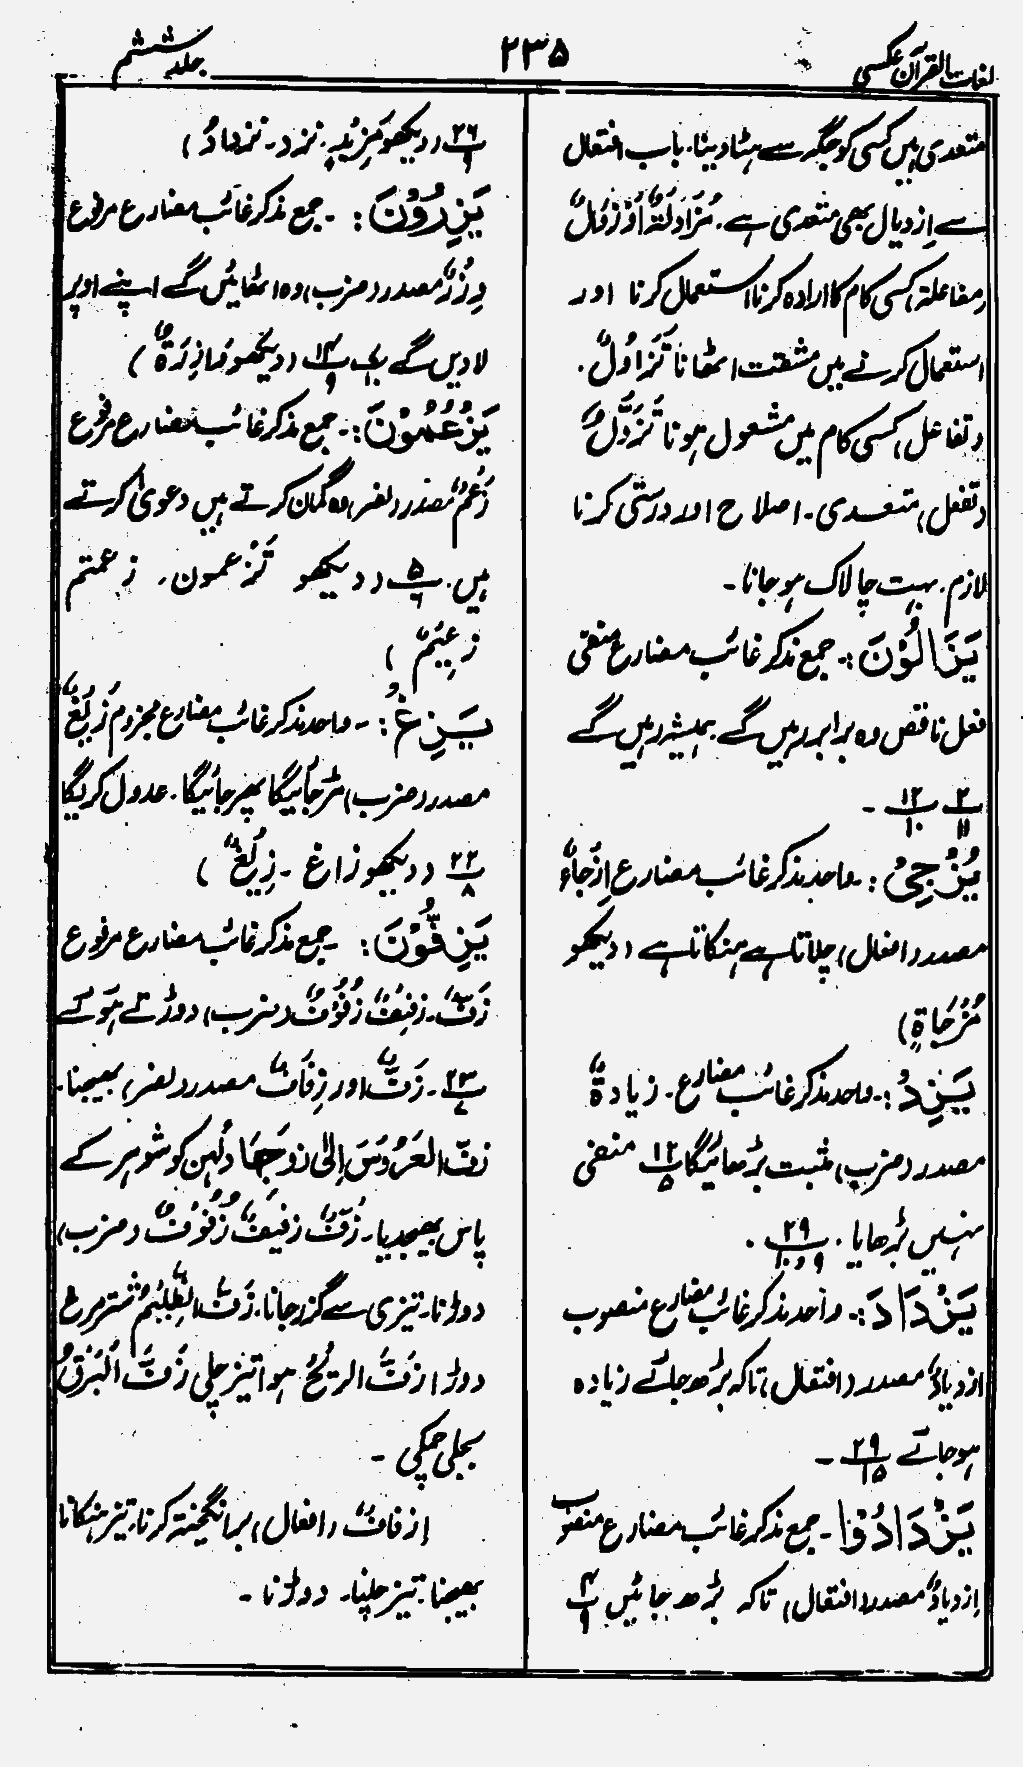 لغات القرآن عکسی
۲۳۵
جلد ششم
متعدی ہیں کسی کو جگہ سے ہٹا دینا۔ باب افتعال
سے اِزدیال بھی متعدی ہے۔ مُزَاوَلَۃٌ اَوْزَوَالٌ
(مفاعلۃ) کسی کام کا ارادہ کرنا استعمال کرنا اور
استعمال کرنے میں مشقت اٹھانا تَزَاوُلٌ۔
(تفاعل) کسی کام میں مشغول ہونا تَزَوُّلٌ
(تفعل) متعدی۔ اصلاح اور درستی کرنا
لازم۔ بہت چالاک ہو جانا۔
یَزَالُوْنَ:۔ جمع مذکر غائب مضارع منفی
فعل ناقص وہ برابر رہیں گے۔ ہمیشہ رہیں گے
۲/۱۱ ۱۲/۱۰ ۔
یُزْجِیْ:۔ واحد مذکر غائب مضارع اِزْجَاءٌ
مصدر (افعال) چلاتا ہے ہنکاتا ہے (دیکھو
مُزْجَاۃٍ)
یَزِدُ:۔ واحد مذکر غائب مضارع۔ زیادۃٌ
مصدر (ضرب) مثبت بڑھائیگا ۱۲/۵ منفی
نہیں بڑھایا۔ ۲۹/۹ و ۱۰ ۔
یَزْدَادَ:۔ واحد مذکر غائب مضارع منصوب
ازدیادٌ مصدر (افتعال) تاکہ بڑھ جائے زیادہ
ہو جائے ۲۹/۱۵ ۔
یَزْدَادُوْا۔ جمع مذکر غائب مضارع منصوب
اِزدیادٌ مصدر (افتعال) تاکہ بڑھ جائیں ۴/۹
۲۶/۹ (دیکھو مَزِیْدٍ۔ نزد۔ نزدادُ)
یَزِرُوْنَ:۔ جمع مذکر غائب مضارع مرفوع
وِزْرٌ مصدر (ضرب) وہ اٹھائیں گے اپنے اوپر
لادیں گے ۱۴/۹ (دیکھو وَازِرَۃٌ)
یَزْعُمُوْنَ:۔ جمع مذکر غائب مضارع مرفوع
زُعْمٌ مصدر (نصر) وہ گمان کرتے ہیں دعویٰ کرتے
ہیں۔ ۵/۶ (دیکھو تَزْعمون۔ زعمتم
زعِیْمٌ)
یَزِغْ:۔ واحد مذکر غائب مضارع مجزوم زَیْغٌ
مصدر (ضرب) مڑ جائیگا پھر جائیگا۔ عدول کریگا
۲۲/۸ (دیکھو زاغ۔ زیْغٌ)
یَزِفُّوْنَ:۔ جمع مذکر غائب مضارع مرفوع
زَفٌّ۔ زفیفٌ زُفُوْفٌ (ضرب) دوڑتے ہوئے
۲۳/۷۔ زَفٌّ اور زِفَافٌ مصدر (نصر) بھیجنا۔
زفَّ العَرُوْسَ اِلیٰ زوجِھَا دلہن کو شوہر کے
پاس بھیجدیا۔ زَفٌّ زفیفٌ زُفُوْفٌ (ضرب)
دوڑنا۔ تیزی سے گزر جانا۔ زَفَّ الظَّلِیْمُ شتر مرغ
دوڑا زَفَّ الریْحُ ہوا تیز چلی زَفَّ الْبَرْقُ
بجلی چمکی۔
اِزفافٌ (افعال) برانگیختہ کرنا۔ تیز ہنکانا
بھیجنا۔ تیز چلنا۔ دوڑنا۔